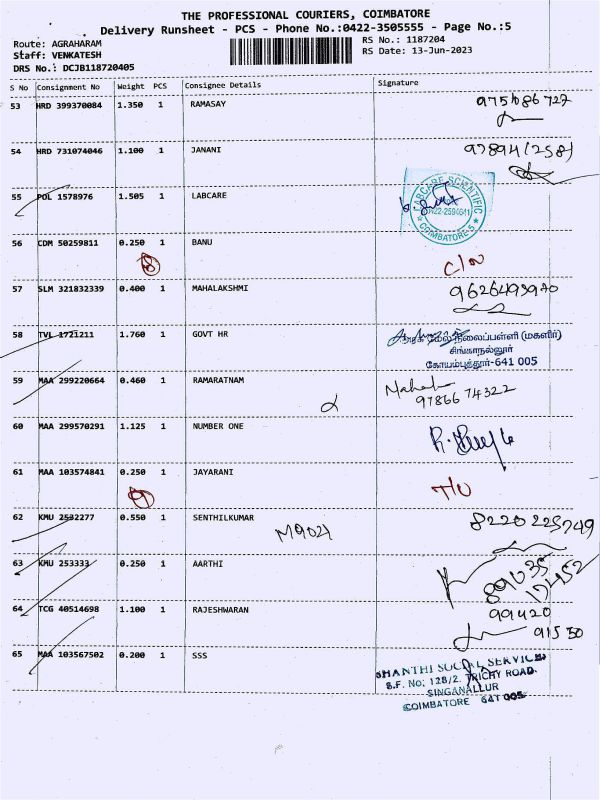 THE PROFESSIONAL COURIERS, COIMBATORE
Delivery Runsheet - PCS - Phone No.:0422-3505555 - Page No.:5
Route: AGRAHARAM RS No.: 1187204
Staff: VENKATESH RS Date: 13-Jun-2023
DRS No.: DCJB118720405
S No Consignment No Weight PCS Consignee Details Signature
53 HRD 399370084 1.350 1 RAMASAY
54 HRD 731074046 1.100 1 JANANI
55 POL 1578976 1.505 1 LABCARE
LABCARE SCIENTIFIC
COIMBATORE-5
56 CDM 50259811 0.250 1 BANU
8
57 SLM 321832339 0.400 1 MAHALAKSHMI
58 TVL 1721211 1.760 1 GOVT HR
மேல்நிலைப்பள்ளி (மகளிர்)
சிங்காநல்லூர்
கோயம்புத்தூர்-641 005
59 MAA 299220664 0.460 1 RAMARATNAM
97866 74322
60 MAA 299570291 1.125 1 NUMBER ONE
61 MAA 103574841 0.250 1 JAYARANI
9
62 KMU 2532277 0.550 1 SENTHILKUMAR 8220225749
M9021
63 KMU 253333 0.250 1 AARTHI
64 TCG 40514698 1.100 1 RAJESHWARAN 99420
91530
65 MAA 103567502 0.200 1 SSS
SHANTHI SOCIAL SERVICES
S.F. No: 128/2. TRICHY ROAD
SINGANALLUR
COIMBATORE 641 005